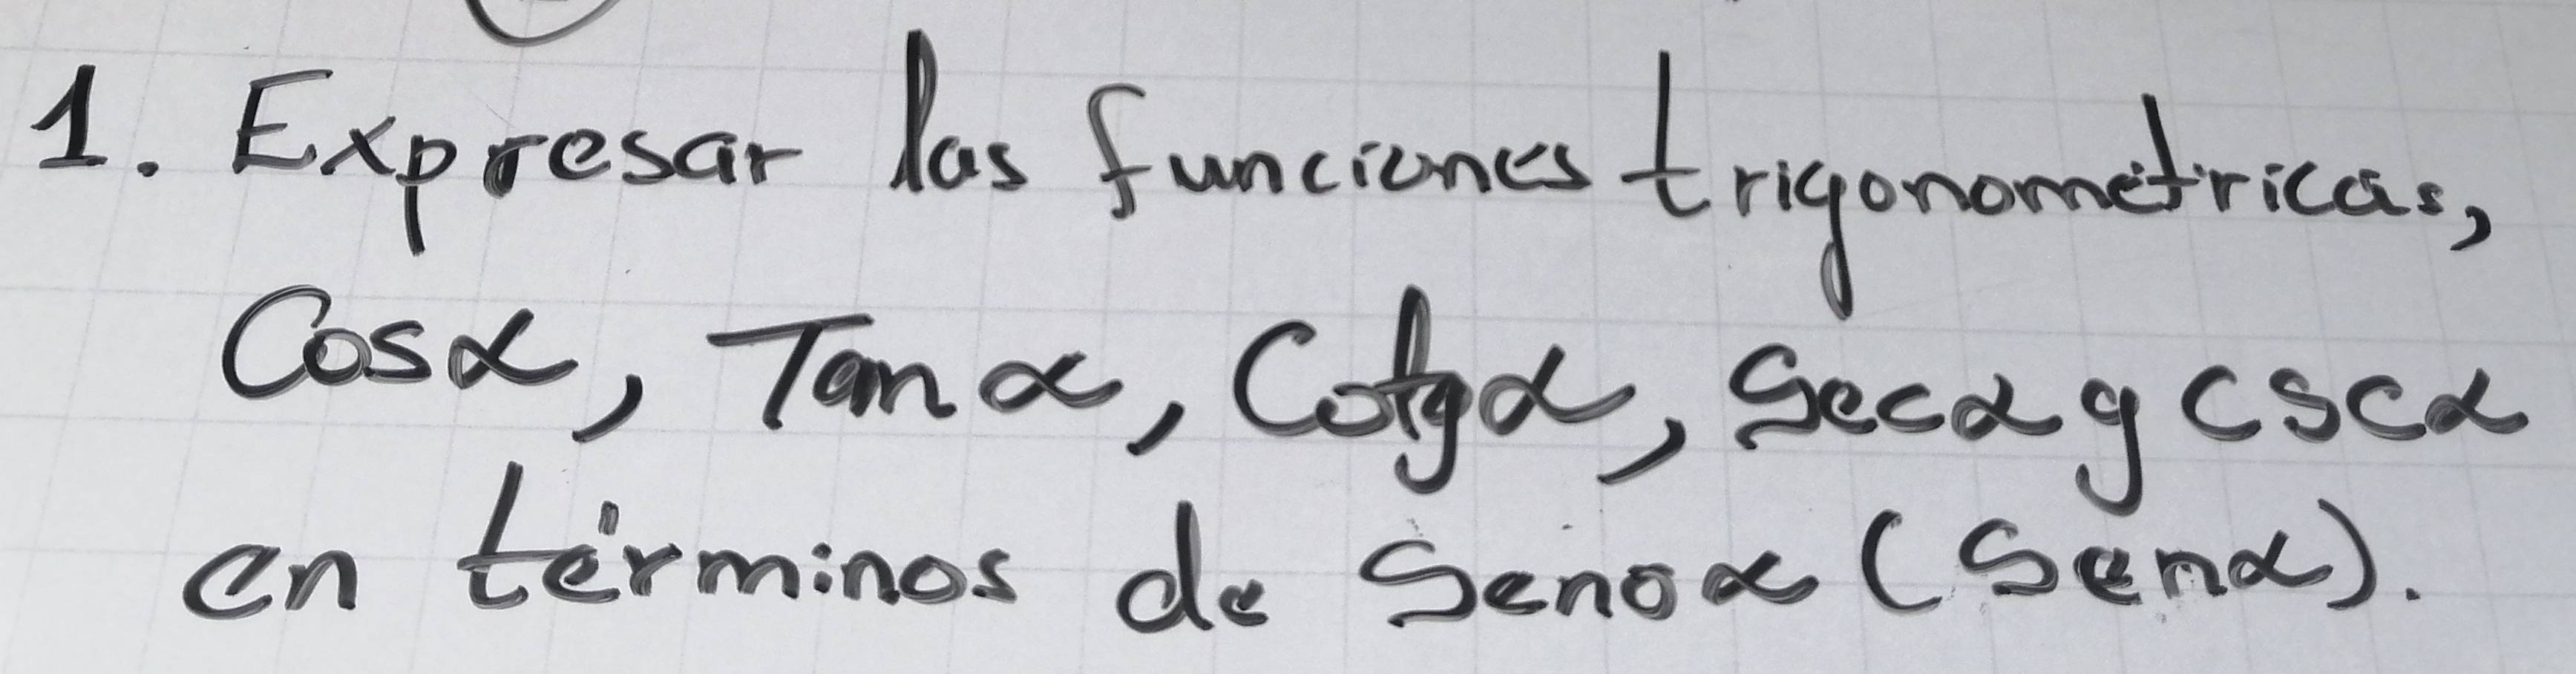 1. Expresar las funciones trigonométricas,
Cosα, Tanα, Cotgα, Secα y CSCα
en términos de Senoα (Senα).